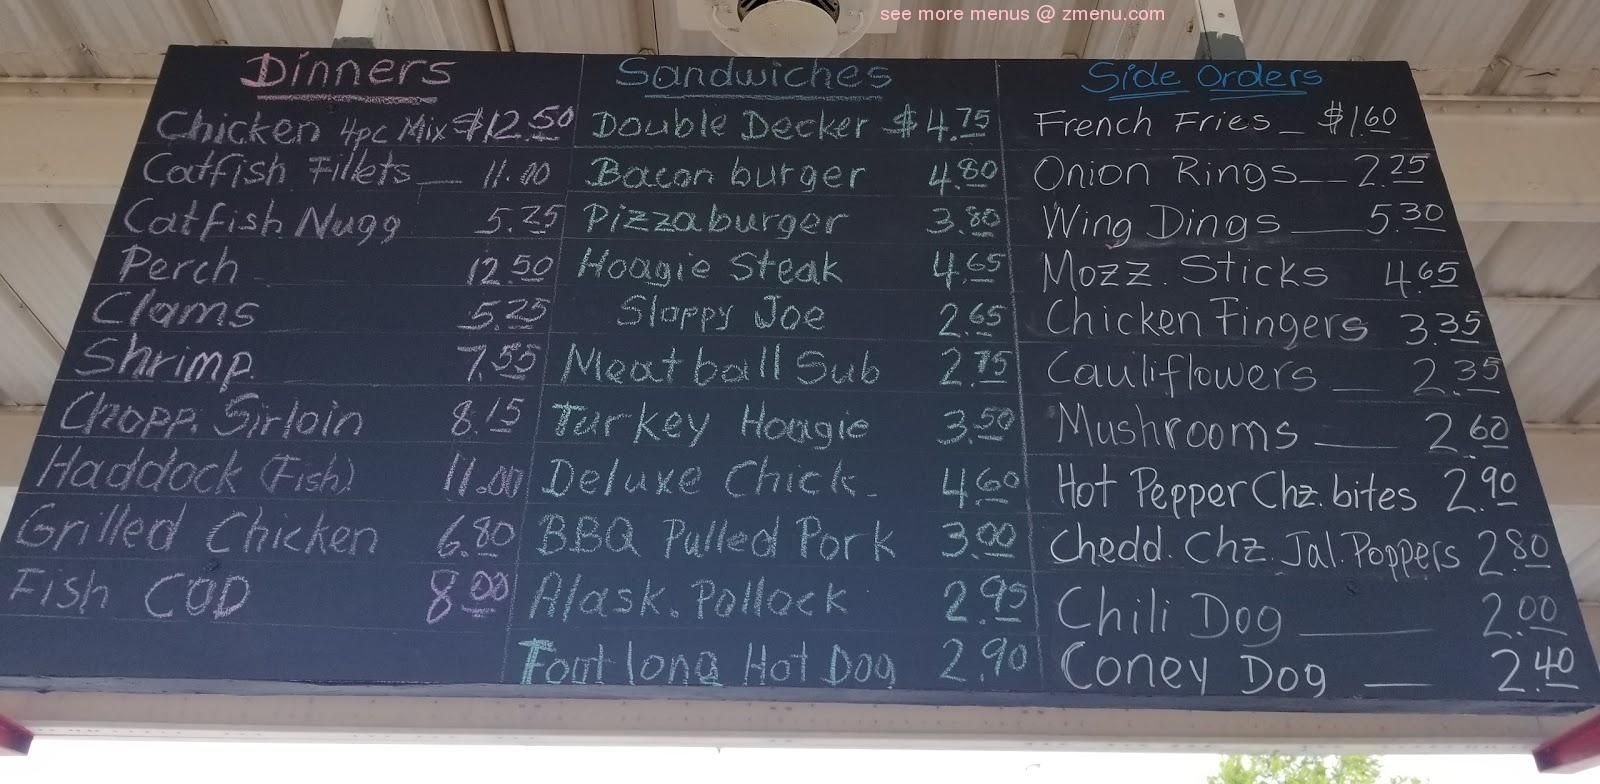 see more menus @ zmenu.com
Dinners
Chicken 4pc Mix $12.50
Catfish Fillets__ 11.00
Catfish Nugg 5.25
Perch 12.50
Clams 5.25
Shrimp 7.55
Chopp. Sirloin 8.15
Haddock (Fish) 11.00
Grilled Chicken 6.80
Fish COD 8.00
Sandwiches
Double Decker $4.75
Bacon burger 4.80
Pizzaburger 3.80
Hoagie Steak 4.65
Sloppy Joe 2.65
Meatball Sub 2.75
Turkey Hoagie 3.50
Deluxe Chick. 4.60
BBQ Pulled Pork 3.00
Alask. Pollock 2.95
Footlong Hot Dog 2.90
Side Orders
French Fries_ $1.60
Onion Rings__ 2.25
Wing Dings __ 5.30
Mozz. Sticks 4.65
Chicken Fingers 3.35
Cauliflowers __ 2.35
Mushrooms __ 2.60
Hot Pepper Chz. bites 2.90
Chedd. Chz. Jal. Poppers 2.80
Chili Dog ___ 2.00
Coney Dog __ 2.40